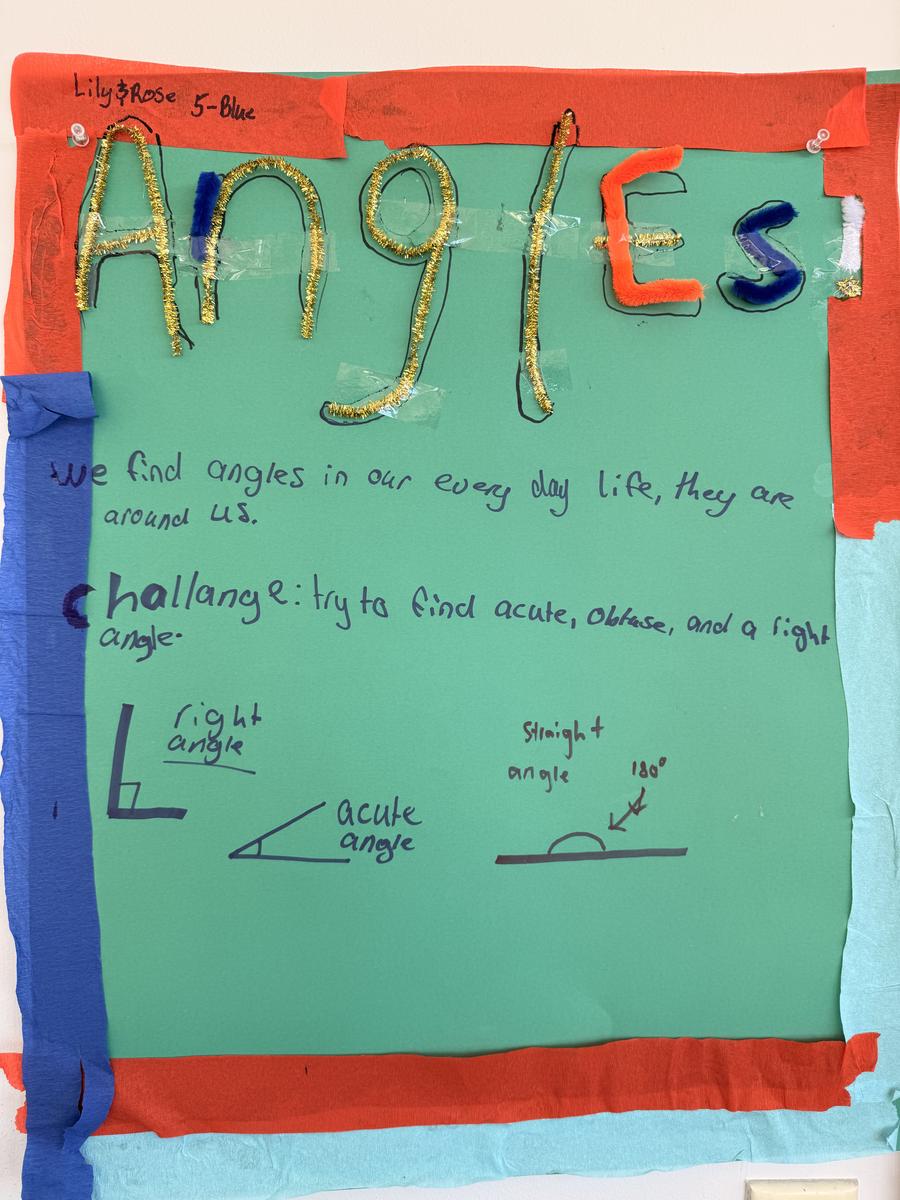 Lily & Rose 5-Blue
AnglEs!
We find angles in our every day life, they are
around us.
Challange: try to find acute, obtuse, and a right
angle.
right
angle
acute
angle
straight
angle 180°